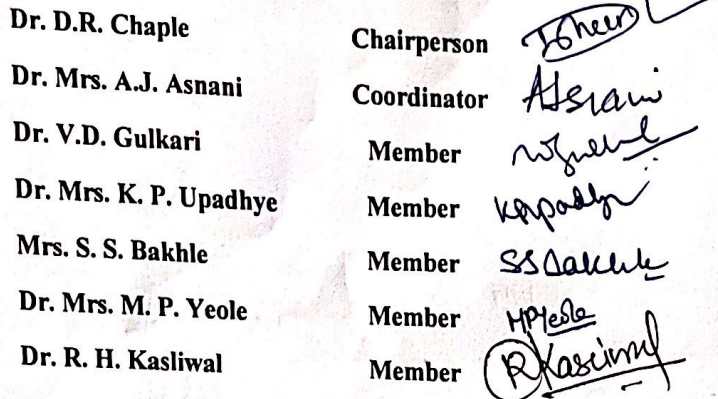 Dr. D.R. Chaple Chairperson
Dr. Mrs. A.J. Asnani Coordinator
Dr. V.D. Gulkari Member
Dr. Mrs. K. P. Upadhye Member
Mrs. S. S. Bakhle Member SSBakhle
Dr. Mrs. M. P. Yeole Member MPYeole
Dr. R. H. Kasliwal Member